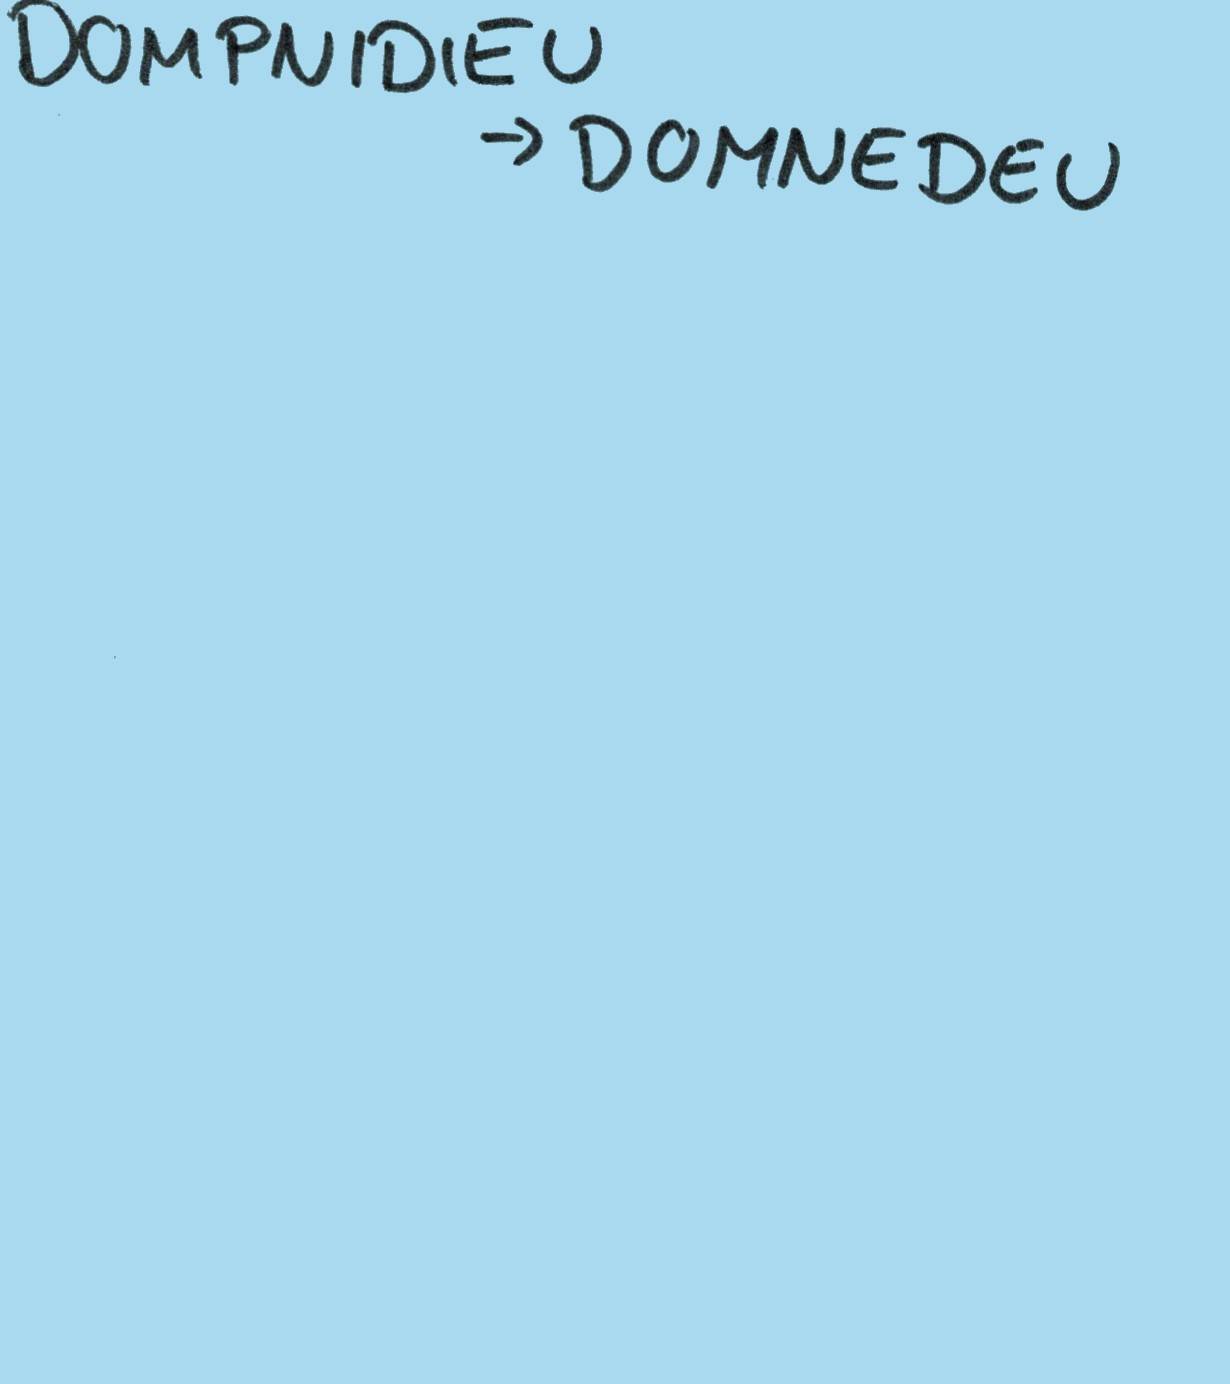 DOMPNIDIEU
→ DOMNEDEU